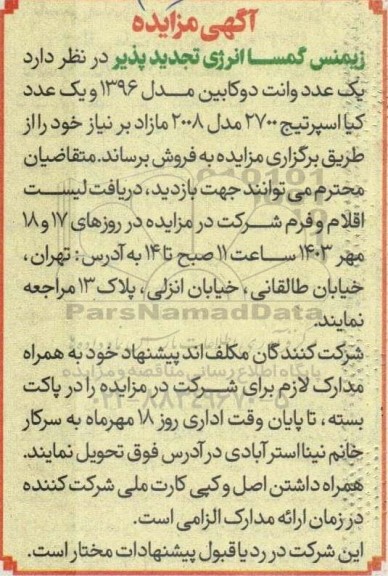 آگهی مزایده
زیمنس گمسا انرژی تجدید پذیر در نظر دارد
یک عدد وانت دوکابین مدل ۱۳۹۶ و یک عدد
کیا اسپرتیج ۲۷۰۰ مدل ۲۰۰۸ مازاد بر نیاز خود را از
طریق برگزاری مزایده به فروش برساند. متقاضیان
محترم می توانند جهت بازدید، دریافت لیست
اقلام و فرم شرکت در مزایده در روزهای ۱۷ و ۱۸
مهر ۱۴۰۳ ساعت ۱۱ صبح تا ۱۴ به آدرس: تهران،
خیابان طالقانی، خیابان انزلی، پلاک ۱۳ مراجعه
نمایند.
ParsNamadData
شرکت کنندگان مکلف اند پیشنهاد خود به همراه
پایگاه اطلاع رسانی مناقصه و مزایده
مدارک لازم برای شرکت در مزایده را در پاکت
۰۲۱-۸۸۳۴۹۶۷۰-۵
بسته، تا پایان وقت اداری روز ۱۸ مهرماه به سرکار
خانم نینا استرآبادی در آدرس فوق تحویل نمایند.
همراه داشتن اصل و کپی کارت ملی شرکت کننده
در زمان ارائه مدارک الزامی است.
این شرکت در رد یا قبول پیشنهادات مختار است.